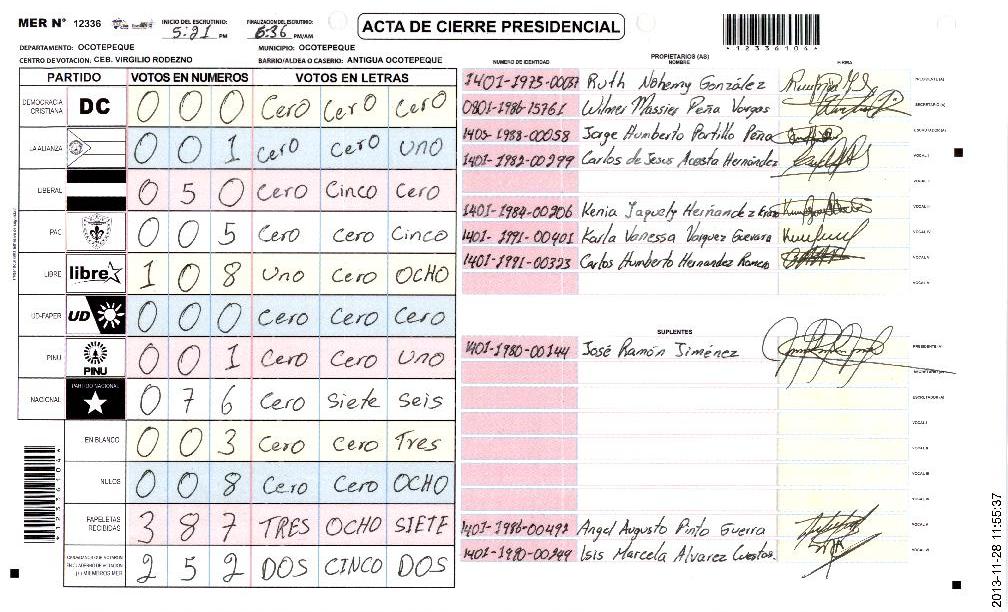 MER N° 12336
INICIO DEL ESCRUTINIO: 5:21 PM
FINALIZACION DEL ESCRUTINIO: 6:36 PM/AM
ACTA DE CIERRE PRESIDENCIAL
*12336104*
DEPARTAMENTO: OCOTEPEQUE
MUNICIPIO: OCOTEPEQUE
CENTRO DE VOTACION: CEB. VIRGILIO RODEZNO
BARRIO/ALDEA O CASERIO: ANTIGUA OCOTEPEQUE
PARTIDO VOTOS EN NUMEROS VOTOS EN LETRAS
DEMOCRACIA CRISTIANA DC 0 0 0 Cero Cero Cero
LA ALIANZA 0 0 1 Cero Cero Uno
LIBERAL 0 5 0 Cero Cinco Cero
PAC 0 0 5 Cero Cero Cinco
LIBRE libre 1 0 8 Uno Cero OCHO
UD-FAPER UD 0 0 0 Cero Cero Cero
PINU PINU 0 0 1 Cero Cero Uno
NACIONAL PARTIDO NACIONAL 0 7 6 Cero Siete Seis
EN BLANCO 0 0 3 Cero Cero Tres
NULOS 0 0 8 Cero Cero OCHO
PAPELETAS RECIBIDAS 3 8 7 TRES OCHO SIETE
CIUDADANOS QUE VOTARON EN CUADERNO DE VOTACION (+) MIEMBROS MER 2 5 2 DOS CINCO DOS
*12336104*
PROPIETARIOS (AS)
NUMERO DE IDENTIDAD NOMBRE FIRMA
1401-1975-00037 Ruth Nohemy González PRESIDENTE(A)
0801-1986-15761 Wilmer Massier Peña Vargas SECRETARIO(A)
1405-1988-00058 Jorge Humberto Portillo Peña ESCRUTADOR(A)
1401-1982-00299 Carlos de Jesus Acosta Hernández VOCAL I
1401-1984-00206 Kenia Jaquely Hernandez VOCAL III
1401-1991-00401 Karla Vanessa Vasquez Guevara VOCAL IV
1401-1991-00323 Carlos Humberto Hernandez Ramos VOCAL V
SUPLENTES
1401-1980-00144 José Ramón Jiménez PRESIDENTE(A)
SECRETARIO(A)
ESCRUTADOR(A)
VOCAL I
VOCAL II
VOCAL III
VOCAL IV
1401-1986-00492 Angel Augusto Pinto Guerra VOCAL V
1401-1980-00249 Isis Marcela Alvarez Cuestas. VOCAL VI
2013-11-28 11:55:37